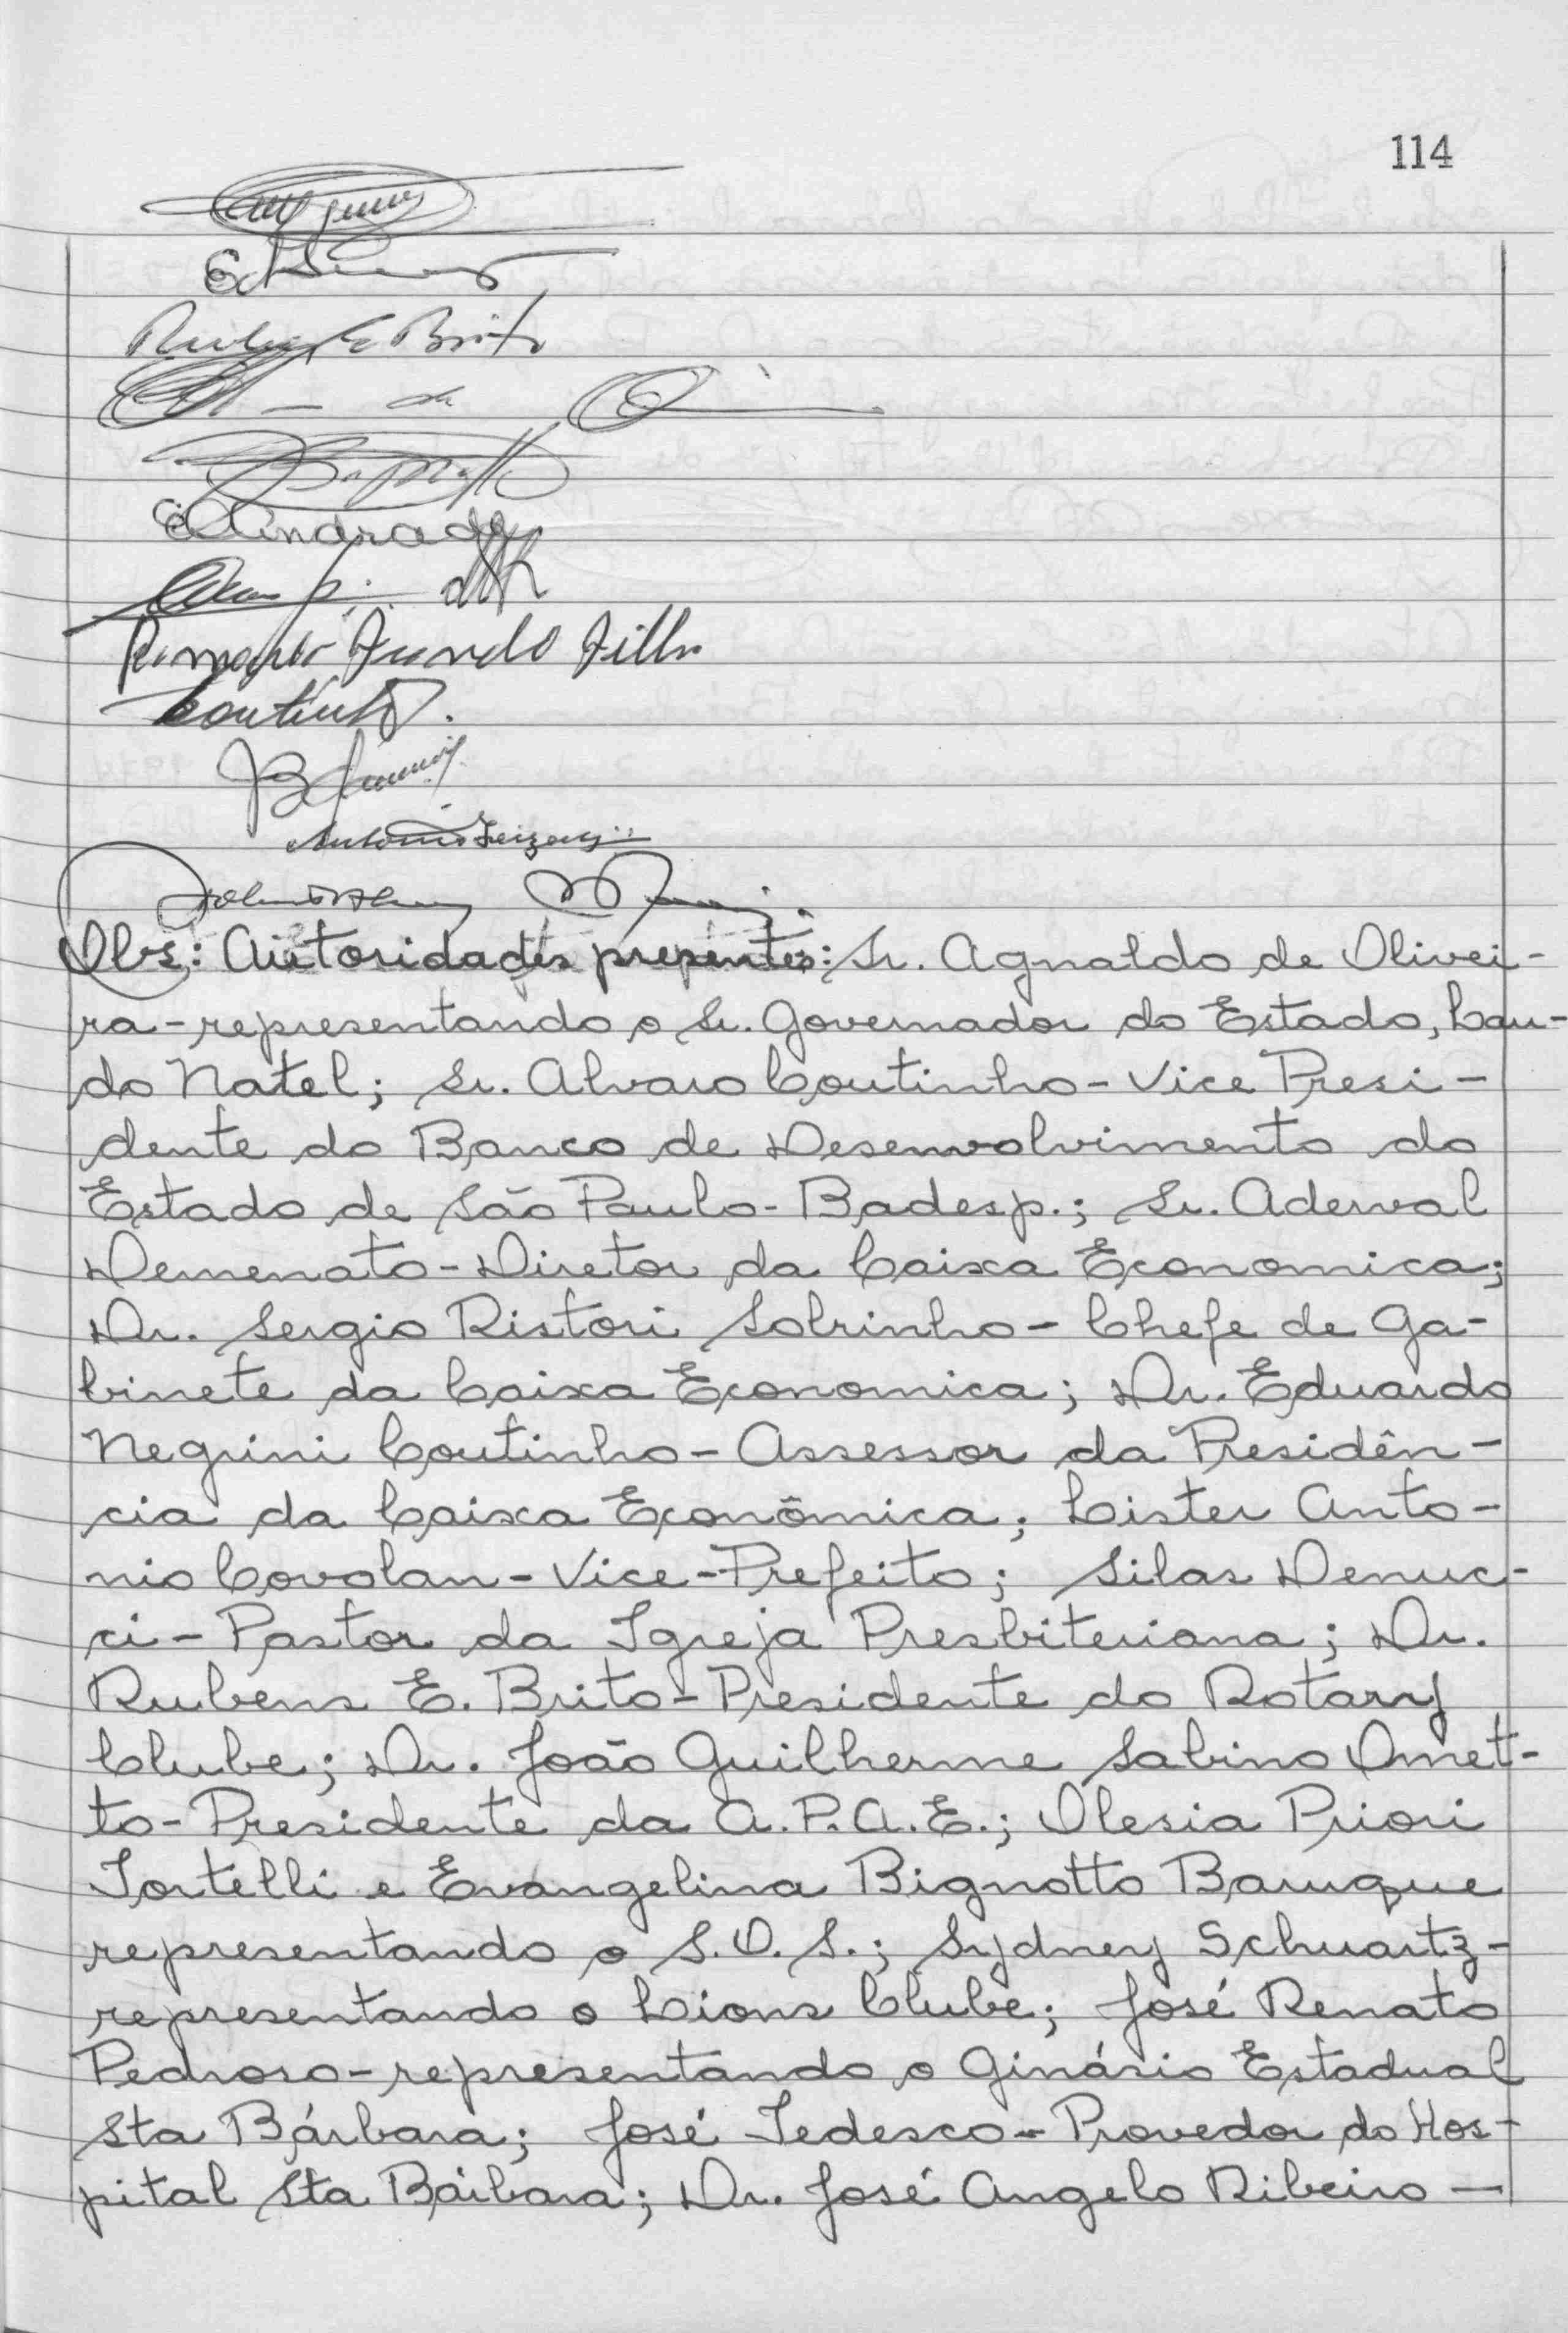 114
Rubens E Brito
Andrade
Romano Fundo Filho
Coutinho.
Antonio
Obs: Autoridades presentes: Sr. Agnaldo de Olivei-
ra - representando o Sr. Governador do Estado, Lau-
do Natel; Sr. Alvaro Coutinho - Vice Presi-
dente do Banco de Desenvolvimento do
Estado de São Paulo - Badesp.; Sr. Aderval
Demenato - Diretor da Caixa Economica;
Dr. Sergio Ristori Sobrinho - Chefe de Ga-
binete da Caixa Economica; Dr. Eduardo
Negrini Coutinho - Assessor da Presidên-
cia da Caixa Econômica; Lister Anto-
nio Covolan - Vice-Prefeito; Silas Denuc-
ci - Pastor da Igreja Presbiteriana; Dr.
Rubens E. Brito - Presidente do Rotary
Clube; Dr. João Guilherme Sabino Omet-
to - Presidente da A.P.A.E.; Olesia Priori
Tortelli e Evangelina Bignotto Baruque
representando o S.O.S.; Sydney Schuartz -
representando o Lions Clube; José Renato
Pedroso - representando o Ginásio Estadual
Sta Bárbara; José Tedesco - Provedor do Hos-
pital Sta Bárbara; Dr. José Angelo Ribeiro -